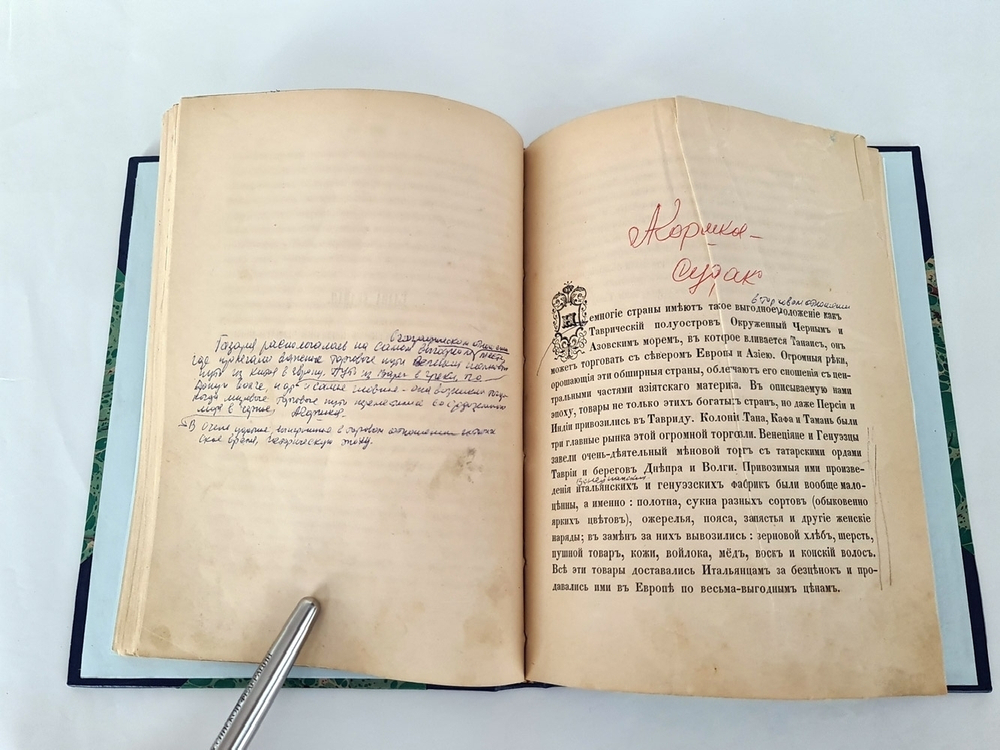 в географическом отношении
Газария располагалась на самом выгодном месте,
где пролегали важные торговые пути
пути из Китая в Европу. Путь из Варяг в греки по
Волге
торговые пути
мира
В Очень удачное в торговом отношении
время, историческую эпоху.
Жорика –
Судак
в торговом отношении
Немногіе страны имѣютъ такое выгодное положеніе какъ
Таврическій полуостровъ Окруженный Чернымъ и
Азовскимъ моремъ, въ которое вливается Танаисъ, онъ
можетъ торговать съ сѣверомъ Европы и Азіею. Огромныя рѣки,
орошающія эти обширныя страны, облечаютъ его сношенія съ цен-
тральными частями азіятскаго материка. Въ описываемую нами
эпоху, товары не только этихъ богатыхъ странъ, но даже Персіи и
Индіи привозились въ Тавриду. Колоніи Тана, Кафа и Тамань были
три главные рынка этой огромной торговли. Венеціяне и Генуэзцы
завели очень-дѣятельный мѣновой торгъ съ татарскими ордами
Тавріи и береговъ Днѣпра и Волги. Привозимыя ими произве-
Венецианских
денія итальянскихъ и генуэзскихъ фабрикъ были вообще мало-
цѣнны, а именно : полотна, сукна разныхъ сортовъ (обыковенно
яркихъ цвѣтовъ), ожерелья, пояса, запястья и другіе женскіе
наряды; въ замѣнъ за нихъ вывозились : зерновой хлѣбъ, шерсть,
пушной товаръ, кожи, войлока, мёдъ, воскъ и конскій волосъ.
Всѣ эти товары доставались Итальянцамъ за безцѣнокъ и про-
давались ими въ Европѣ по весьма-выгоднымъ цѣнамъ.